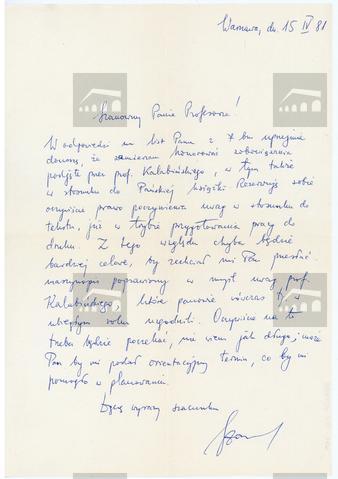 Warszawa, dn. 15 IV 81
Szanowny Panie Profesorze!
W odpowiedzi na list Pana z 7 bm uprzejmie
donoszę, że zamierzam honorować zobowiązania
podjęte przez prof. Kałubińskiego, w tym także
w stosunku do Pańskiej książki. Rezerwuję sobie
oczywiście prawo poczynienia uwag w stosunku do
tekstu, już w trybie przygotowania pracy do
druku. Z tego względu chyba będzie
bardziej celowe, by zechciał mi Pan przesłać
maszynopis poprawiony w myśl uwag prof.
Kałubińskiego, które panowie wówczas w
ubiegłym roku uzgodnili. Oczywiście na to
trzeba będzie poczekać, nie wiem jak długo, może
Pan by mi podał orientacyjny termin, co by mi
pomogło w planowaniu.
Łączę wyrazy szacunku